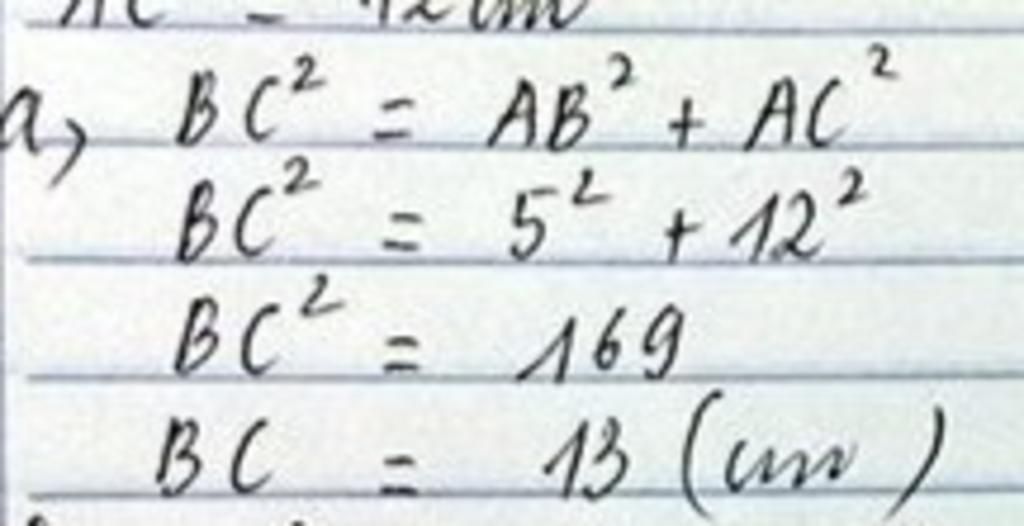 AC = 12 cm
a, BC² = AB² + AC²
BC² = 5² + 12²
BC² = 169
BC = 13 (cm)